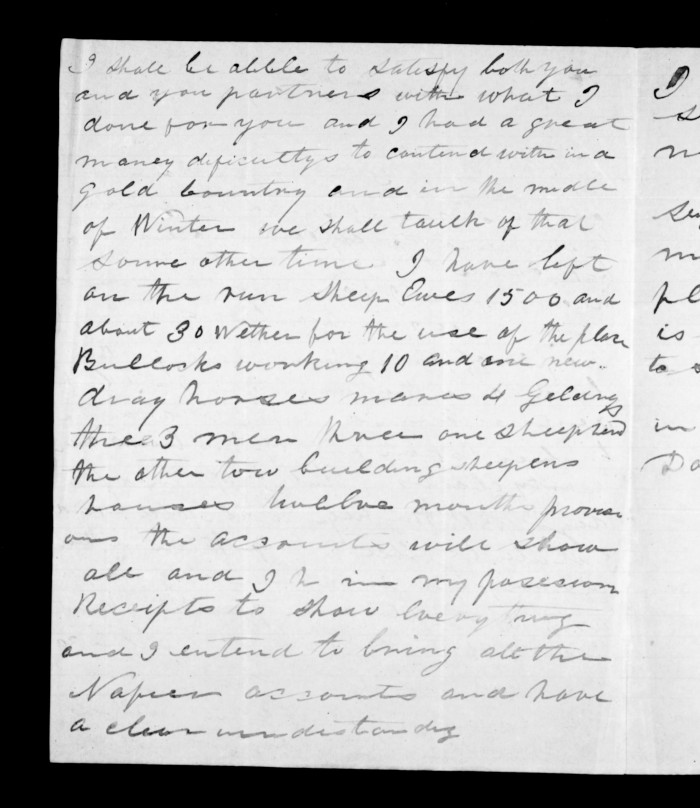 I shall be abble to satisfy both you
and you partners with what I
done for you and I had a great
maney dificultys to contend with in a
gold Country and in the midle
of Winter we shall taulk of that
soume other time I have left
on the run Sheep Ewes 1500 and
about 30 Wether for the use of the place
Bullocks working 10 and one new
dray horses mares 4 Geldings
3 men three one sheepherd
the other tow building sheepens
houses twelve months provisi
ons the accounts will show
all and I h in my posesion
Receipts to show everything
and I entend to bring all the
Napier accounts and have
a clear understandig
I
is
to
in